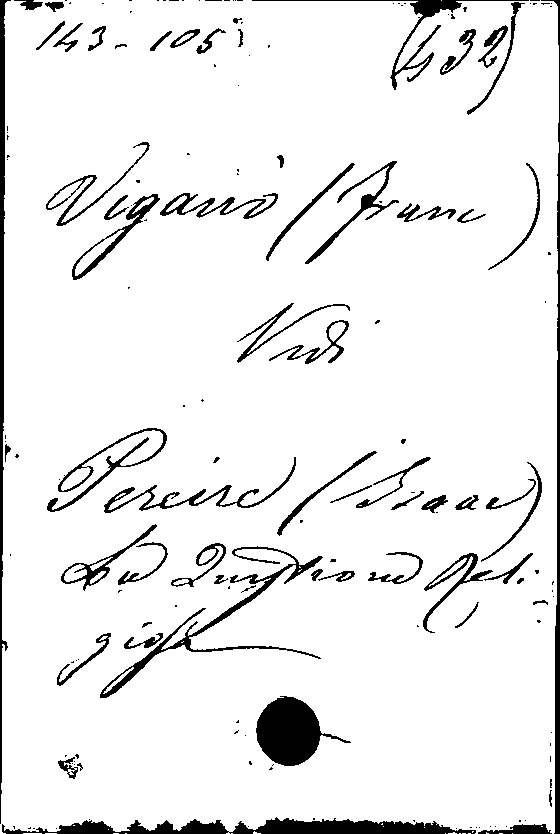 143-105
(432)
Viganò (Franc)
Vidi
Pereire (Isaac)
La Questione Reli-
giosa